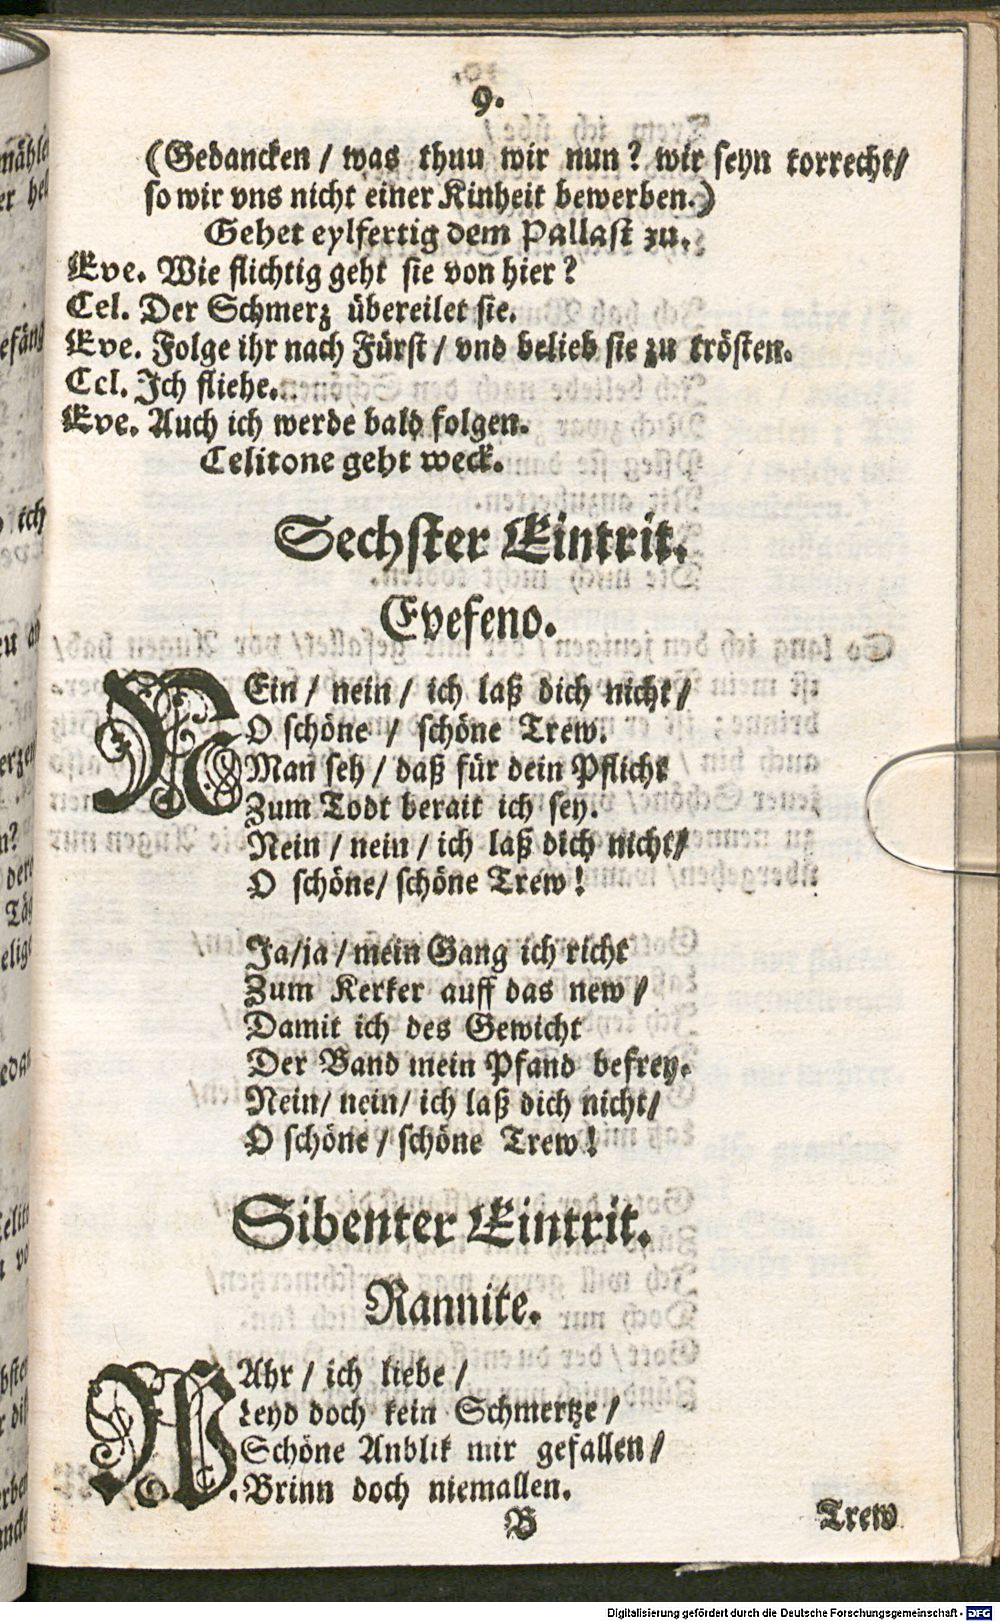 9.
(Gedancken / was thuu wir nun? wir seyn torrecht/
so wir vns nicht einer Kinheit bewerben.)
Gehet eylfertig dem Pallast zu.
Eve. Wie flichtig geht sie von hier?
Cel. Der Schmerz übereilet sie.
Eve. Folge ihr nach Fürst / vnd belieb sie zu trösten.
Cel. Ich fliehe.
Eve. Auch ich werde bald folgen.
Celitone geht weck.
Sechster Eintrit.
Evefeno.
NEin / nein / ich laß dich nicht/
O schöne / schöne Trew.
Man seh / daß für dein Pflicht
Zum Todt berait ich sey.
Nein / nein / ich laß dich nicht/
O schöne/ schöne Trew!
Ja/ja / mein Gang ich richt
Zum Kerker auff das new /
Damit ich des Gewicht
Der Band mein Pfand befrey.
Nein/ nein/ ich laß dich nicht/
O schöne / schöne Trew!
Sibenter Eintrit.
Rannite.
WAhr / ich liebe /
Leyd doch kein Schmertze /
Schöne Anblik mir gefallen /
Brinn doch niemallen.
B
Trew
Digitalisierung gefördert durch die Deutsche Forschungsgemeinschaft - DFG